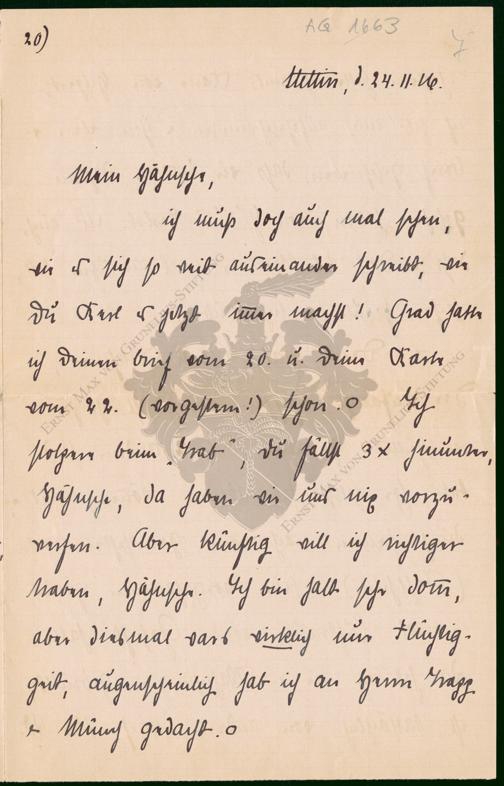 20)
AQ 1663
Stettin, d. 24.11.16.
Mein Hähnsche,
ich muß doch auch mal sehen,
wie es sich so weit auseinander schreibt, wie
Du Kerl es jetzt immer machst! Grad hatte
ich Deinen brief vom 20. u. Deine Karte
vom 22. (vorgestern!) schon. Ich
stolpere beim „trab“, Du fällst 3x hinunter,
Hähnsche, da haben wir uns nix vorzu-
werfen. Aber künftig will ich richtiger
traben, Hähnsche. Ich bin halt sehr dom̄,
aber diesmal wars wirklich nur Flüchtig-
geit, augenscheinlich hab ich an Herrn Trapp
+ Münch gedacht.
ERNST MAX VON GRUNELIUS-STIFTUNG
ERNST MAX VON GRUNELIUS-STIFTUNG